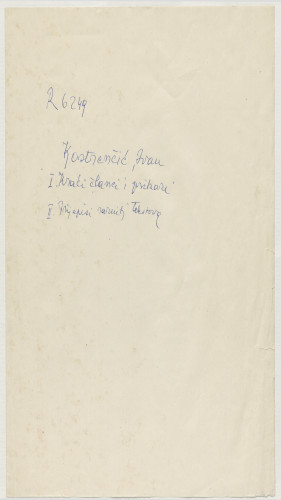 R 6249
Kostrenčić, Ivan
I Kratki članci i prikazi
II Prijepisi raznih tekstova